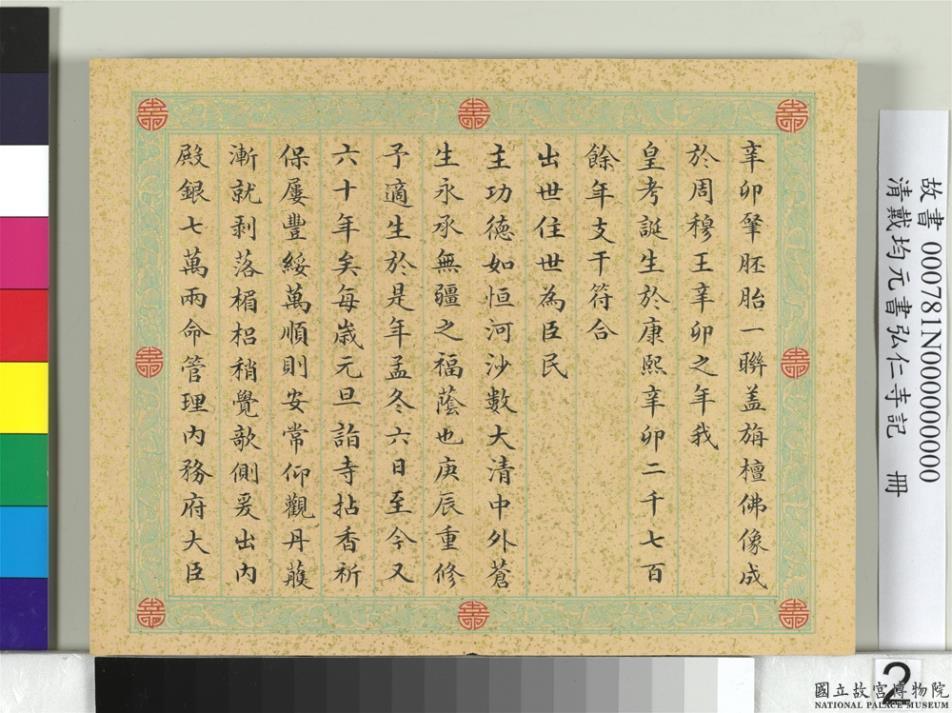 辛卯肇胚胎一聯盖旃檀佛像成
於周穆王辛卯之年我
皇考誕生於康熙辛卯二千七百
餘年支干符合
出世住世為臣民
主功徳如恒河沙數大清中外蒼
生永承無疆之福蔭也庚辰重修
予適生於是年孟冬六日至今又
六十年矣每歳元旦詣寺拈香祈
保屢豐綏萬順則安常仰觀丹雘
漸就剥落楣梠稍覺欹側爰出内
殿銀七萬兩命管理内務府大臣
故書 000781N000000000
清戴均元書弘仁寺記 冊
2
國立故宮博物院
NATIONAL PALACE MUSEUM